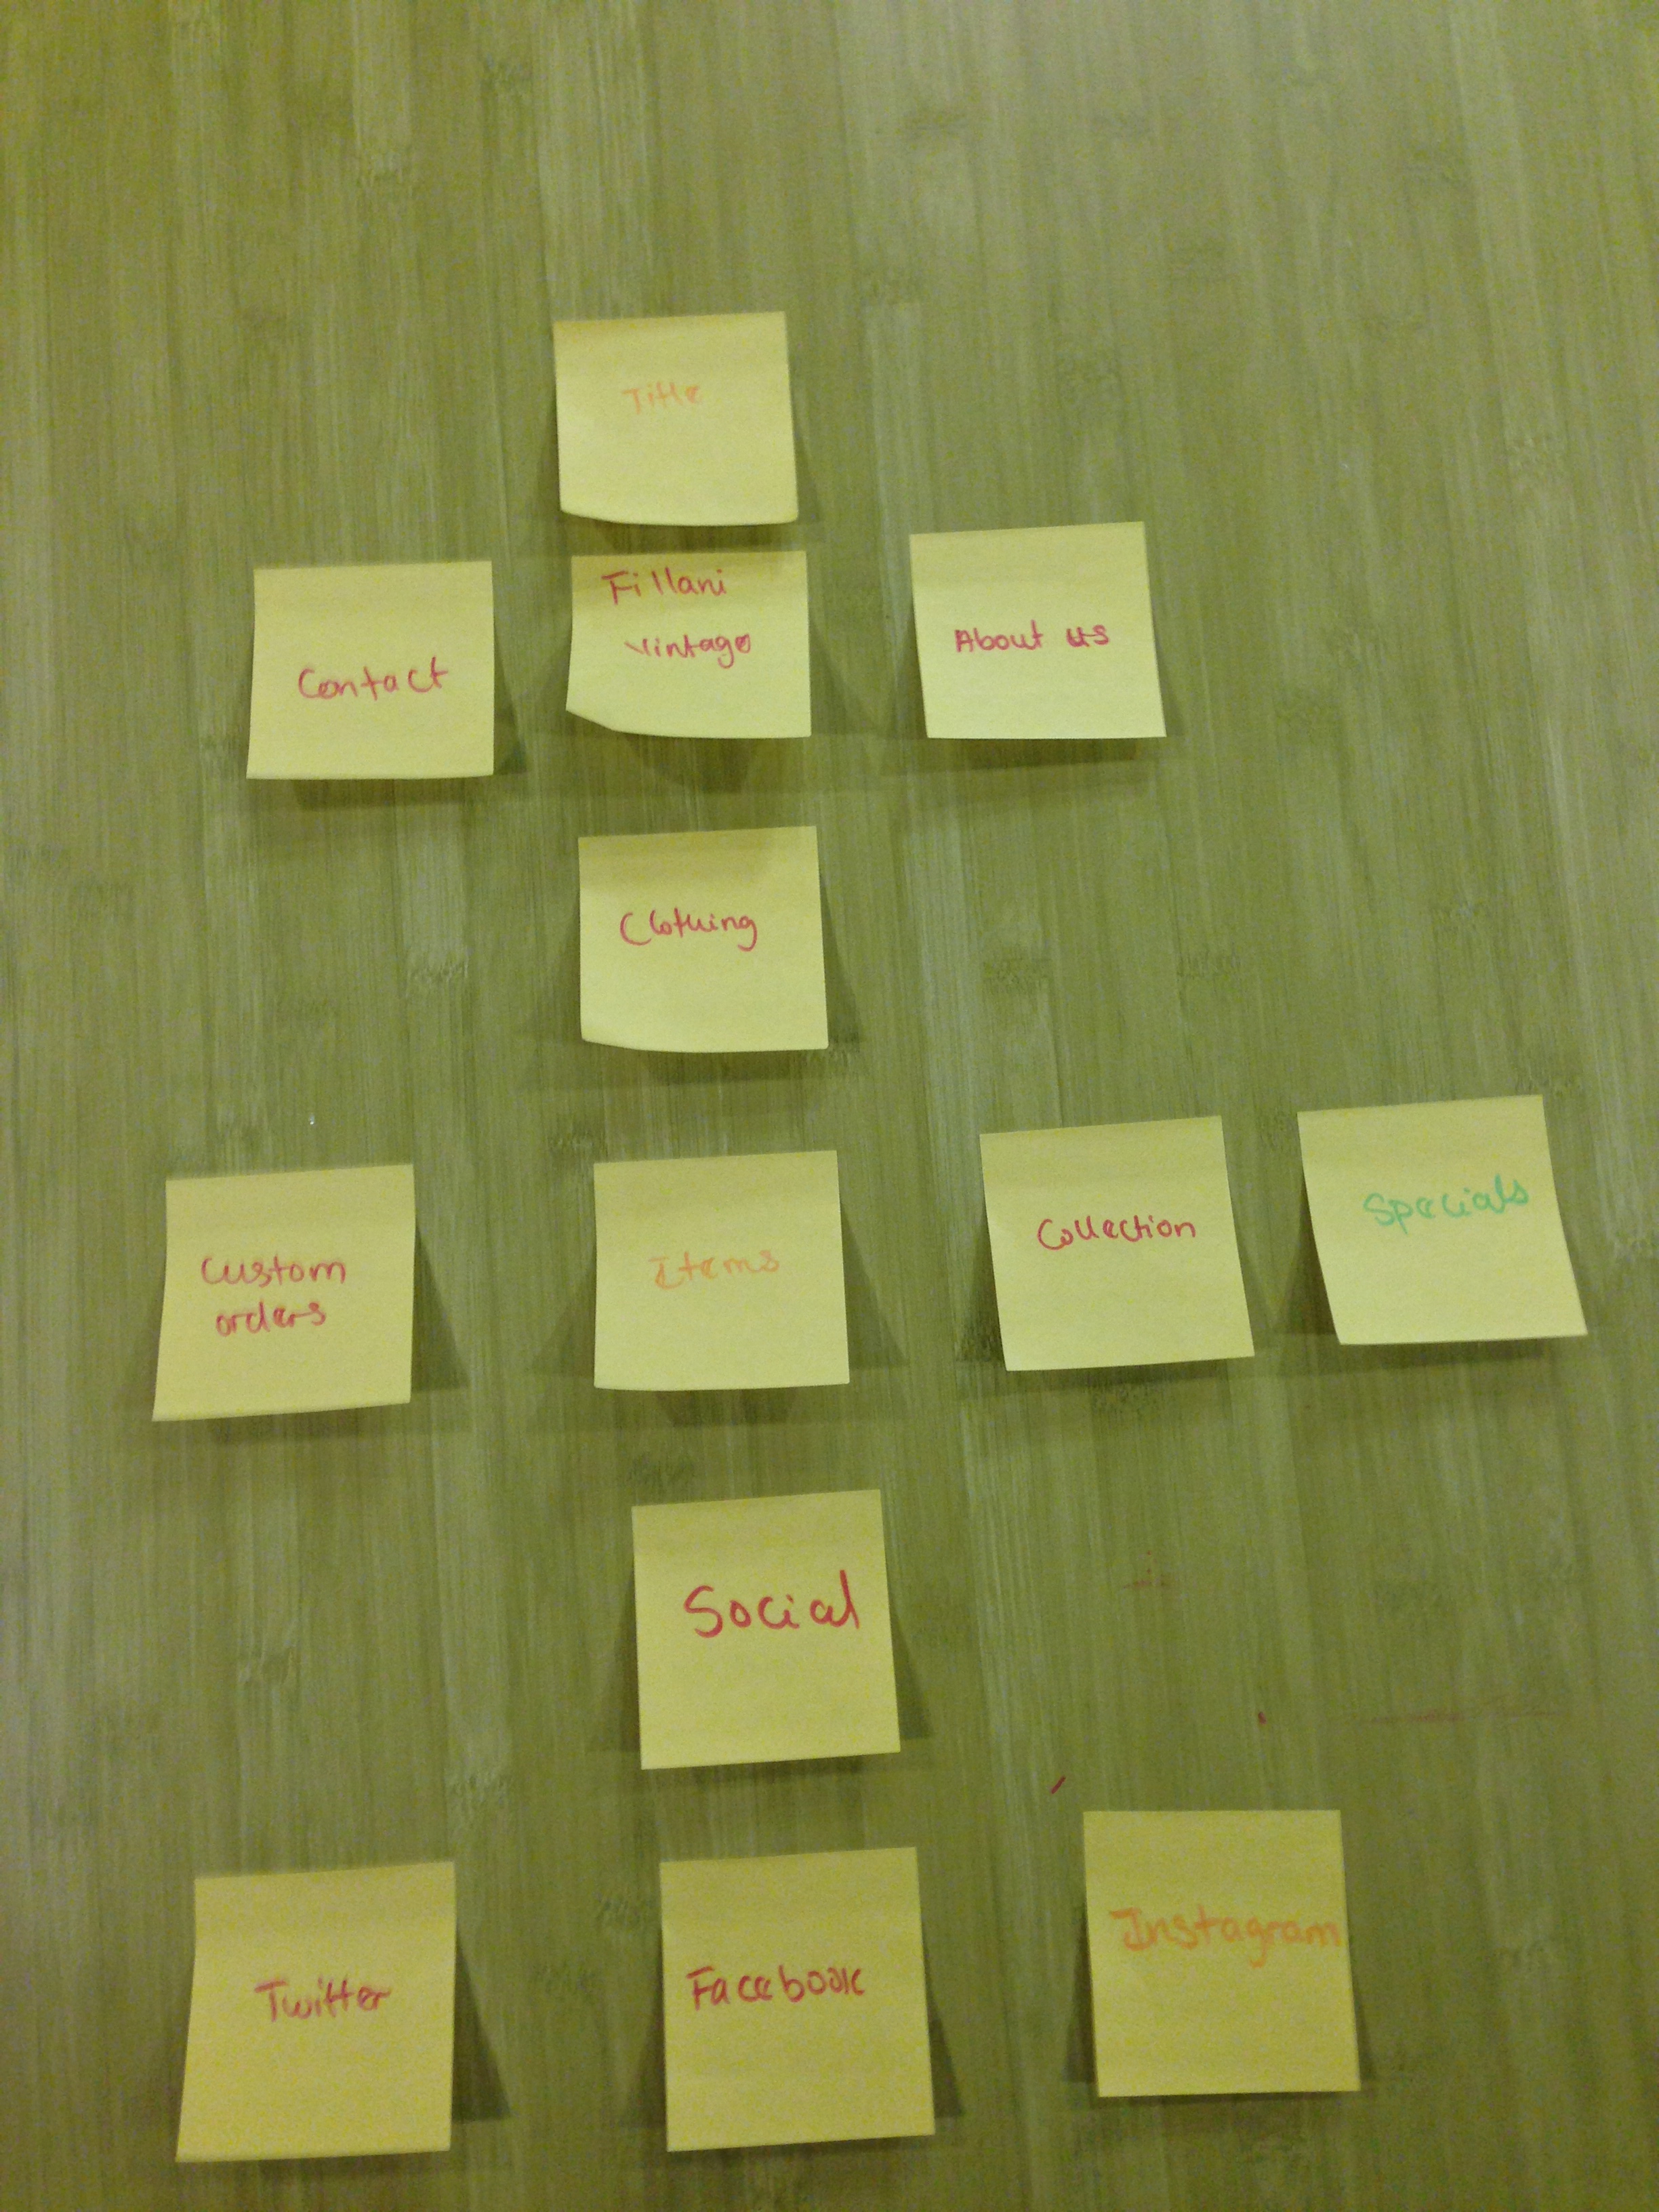 Title
Contact
Fillani
vintage
About us
Clothing
Custom
orders
Items
Collection
Specials
Social
Twitter
Facebook
Instagram